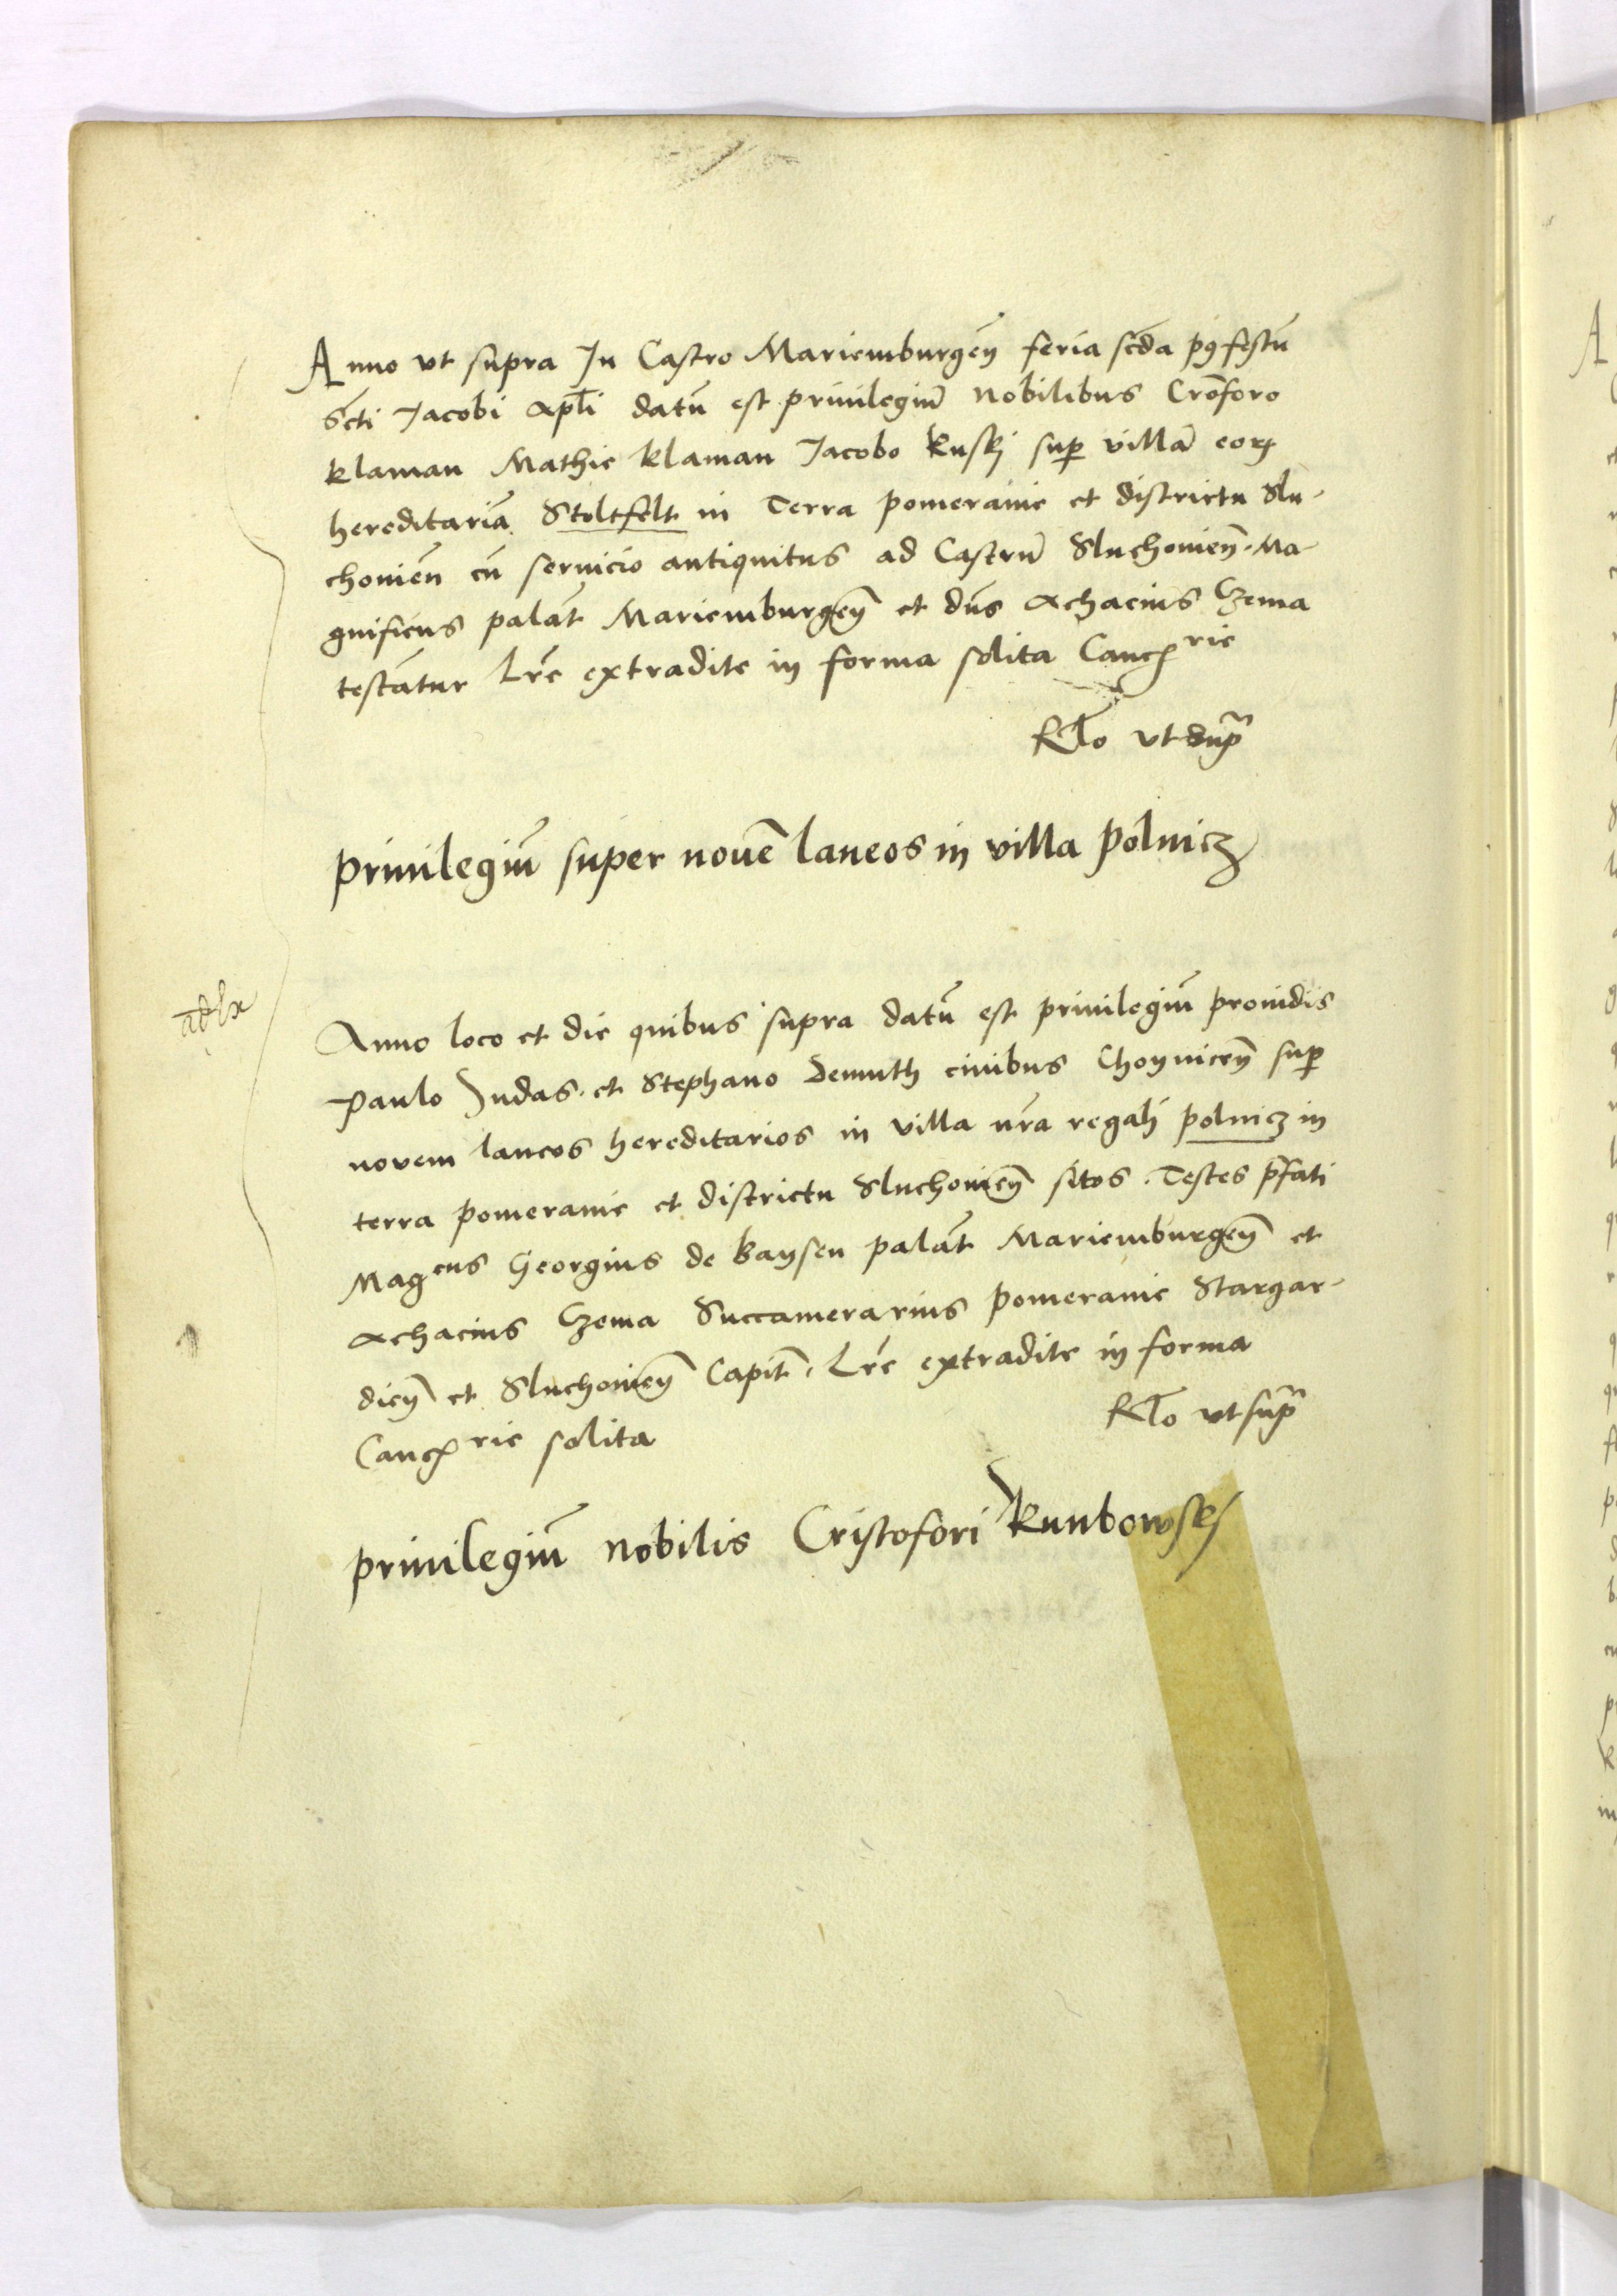 Anno ut supra In Castro Mariemburgeñ feria scđa pꝰ festū
Scti Jacobi Apłi datū est priuilegiū Nobilibus Crōforo
Klaman Mathie Klaman Jacobo Kusky sup villā eorꝝ
hereditariā Stoltfelt in Terra pomeranie et districtu Slu-
chouień cū seruicio antiquitus ad Castrū Sluchouieñ. Ma-
gnificus palat̄ Mariemburgeñ et dūs Achacius Czema
testātur Lr̄e extradite in forma solita Cancꝭrie
Rl̄o vt supᷓ
priuilegiū super nouē laneos in villa polnicz
Anno loco et die quibus supra datū est priuilegiū prouidis
Paulo Judas et Stephano Demuth ciuibus Choyniceñ sup
novem laneos hereditarios in villa nr̄a regali polnicz in
terra pomeranie et districtu Sluchouieñ sitos. Testes p̄fati
Magcus Georgius de Baysen palat̄ Mariemburgeñ et
Achacius Czema Succamerarius pomeranie Stargar-
dieñ et Sluchouieñ Capit̄. Lr̄e extradite in forma
Cancꝭrie solita
Rl̄o vt supᷓ
priuilegiū nobilis Cristofori Kunbowsky